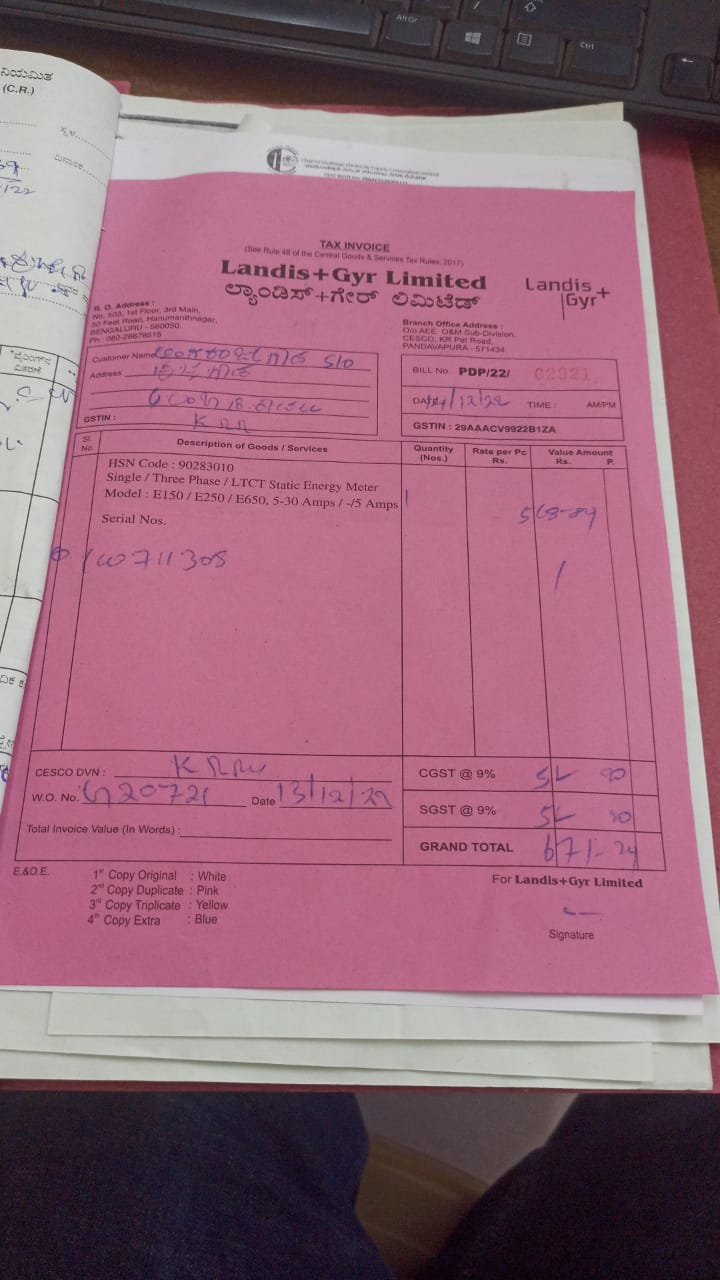 Alt Gr
Ctrl
ನಿಯಮಿತ
(C.R.)
ಸ್ಥಳ
ದಿನಾಂಕ
TAX INVOICE
(See Rule 48 of the Central Goods & Services Tax Rules, 2017)
Landis+Gyr Limited
ಲ್ಯಾಂಡಿಸ್+ಗೇರ್ ಲಿಮಿಟೆಡ್
Landis+
Gyr
R. O. Address :
No. 503, 1st Floor, 3rd Main,
50 Feet Road, Hanumanthnagar,
BENGALURU - 560050.
Ph : 080-26678615
Branch Office Address :
O/o AEE, O&M Sub-Division,
CESCO, KR Pet Road,
PANDAVAPURA - 571434
Customer Name S/o
Address
GSTIN :
BILL No. PDP/22/ 02921
DATE 14/12/22 TIME : AM/PM
GSTIN : 29AAACV9922B1ZA
Sl. No. Description of Goods / Services Quantity (Nos.) Rate per Pc Rs. Value Amount Rs. P.
HSN Code : 90283010
Single / Three Phase / LTCT Static Energy Meter
Model : E150 / E250 / E650, 5-30 Amps / -/5 Amps 1
568-84
Serial Nos.
CESCO DVN :
W.O. No. 420721 Date 13/12/22
Total Invoice Value (In Words) :
CGST @ 9% 51 20
SGST @ 9% 51 20
GRAND TOTAL 671-24
E.&O.E.
1st Copy Original : White
2nd Copy Duplicate : Pink
3rd Copy Triplicate : Yellow
4th Copy Extra : Blue
For Landis+Gyr Limited
Signature